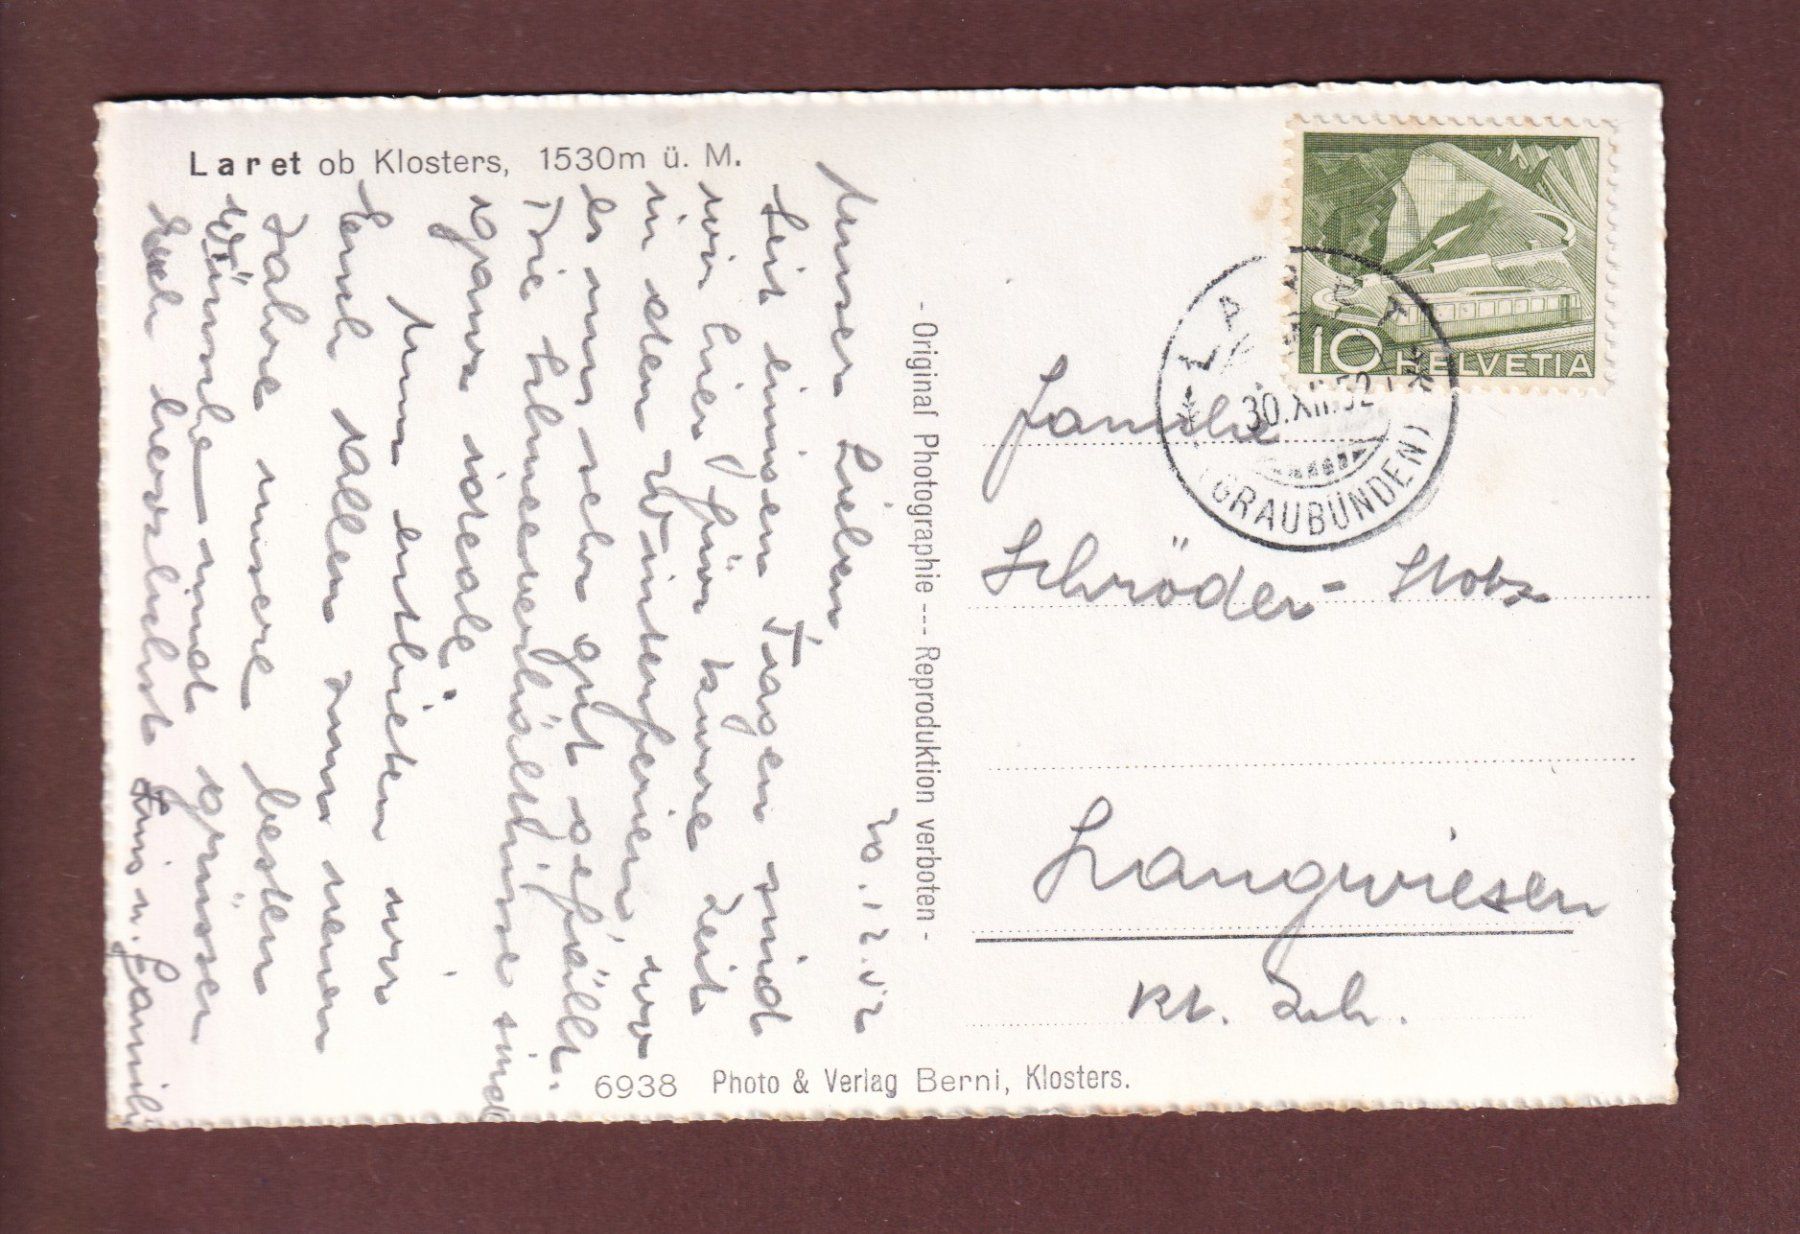 Laret ob Klosters, 1530m ü. M.
30.12.52
Unser Lieben
Seit einigen Tagen sind
wir hier für kurze Zeit
in den Winterferien, wo
es uns sehr gut gefällt.
Die Schneeverhältnisse sind
ganz ideale.
Nun entbieten wir
Euch allen zum neuen
Jahre unsere besten
Wünsche und grüssen
Euch herzlichst
u. Familie
- Original Photographie --- Reproduktion verboten -
6938 Photo & Verlag Berni, Klosters.
10 HELVETIA
LARET
30.XII.52
(GRAUBÜNDEN)
Familie
Schröder-
Langwiesen
Kt. Zch.